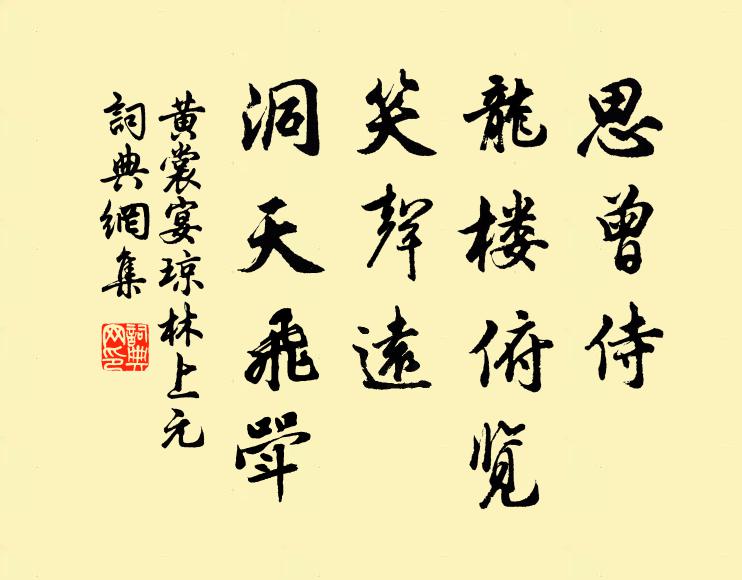 思曾侍
龍楼俯覧
笑聲遠
洞天飛斝
黄裳宴琼林上元
詞典網集
詞典
网印